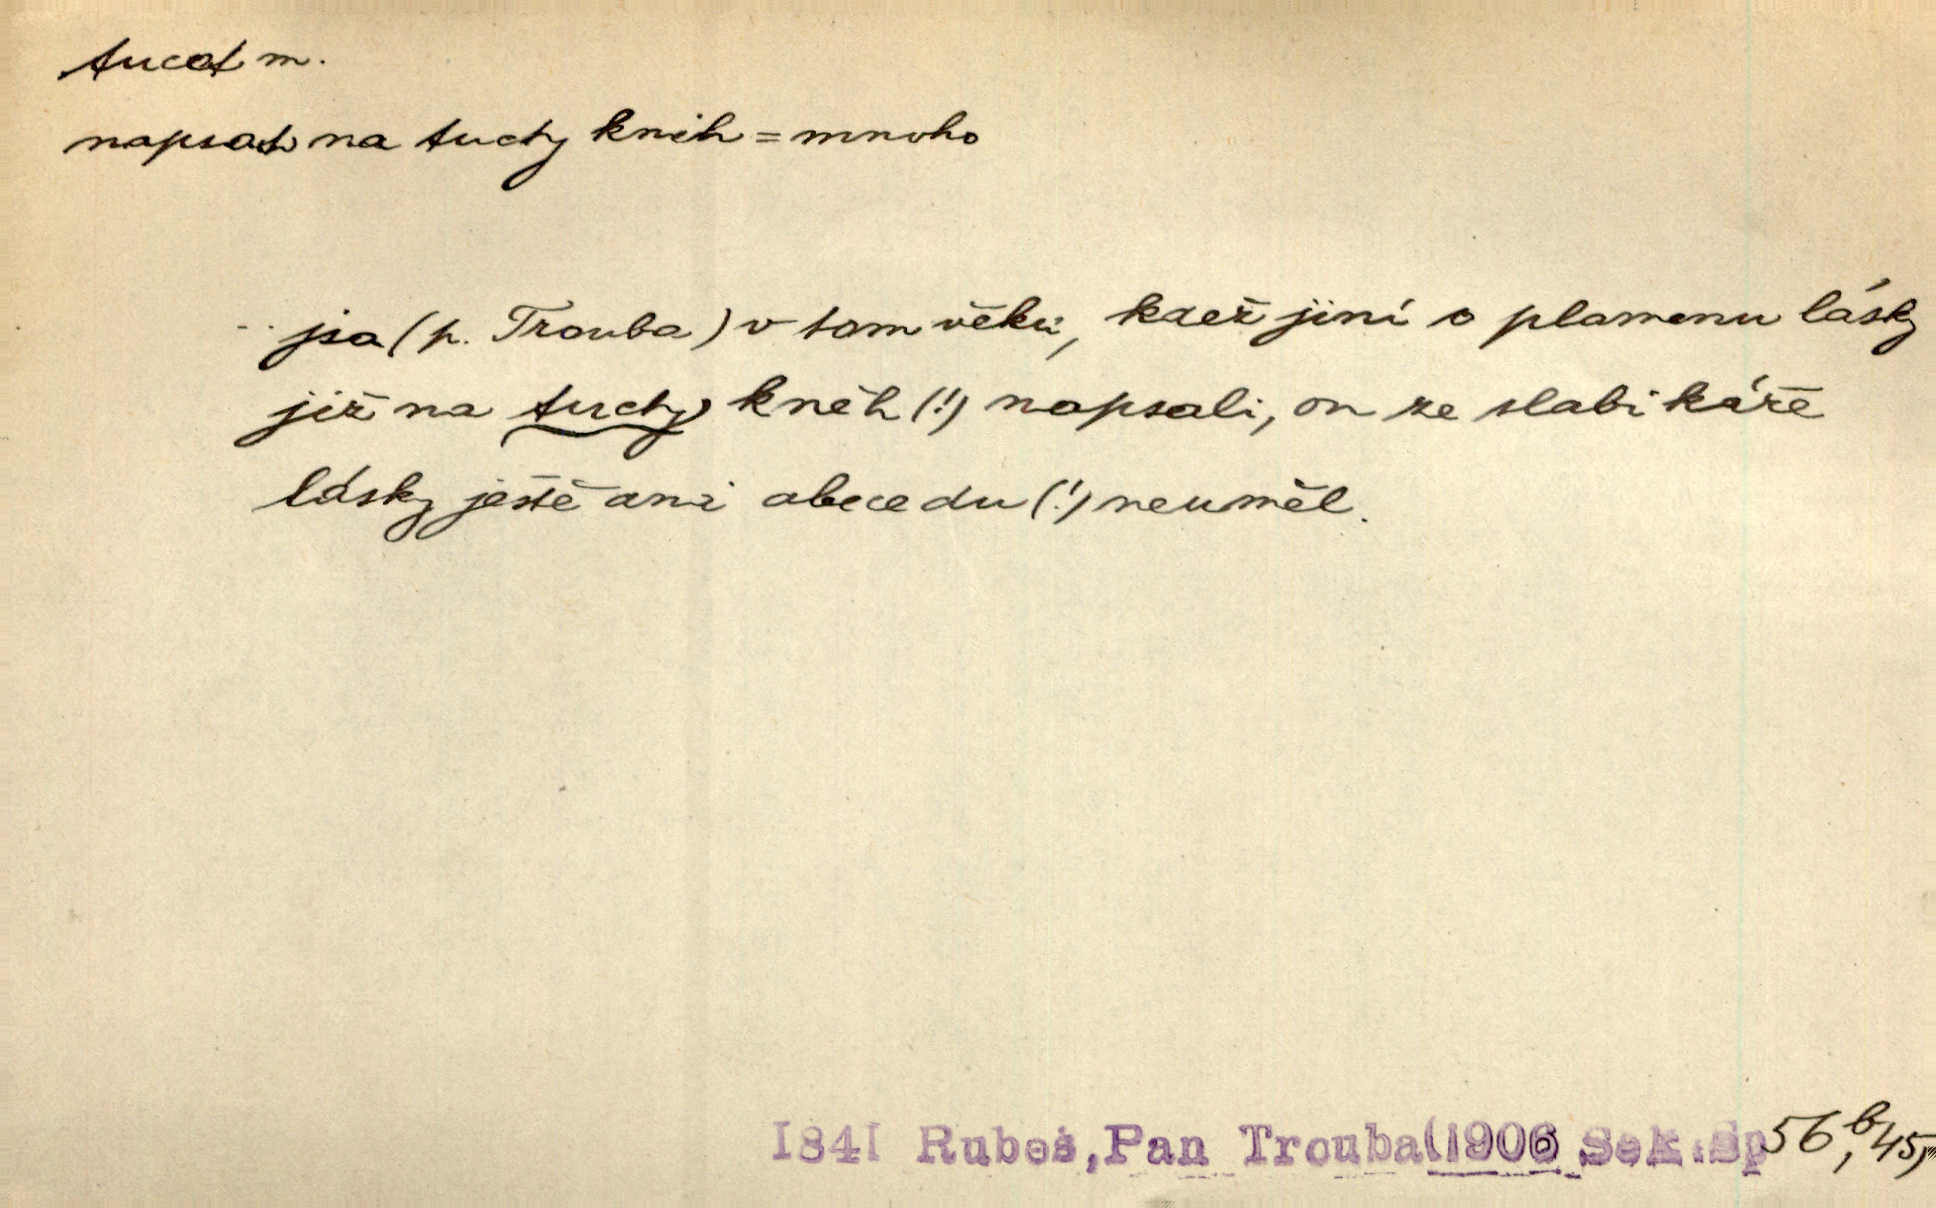 tucet m.
napsat na tucty knih = mnoho
.. jsa (p. Trouba) v tom věku, kdež jiní o plamenu lásky
již na tucty kněh (!) napsali, on ze slabikáře
lásky ještě ani abecedu (!) neuměl.
1841 Rubeš, Pan Trouba (1906 Seb. sp 56, b/45,